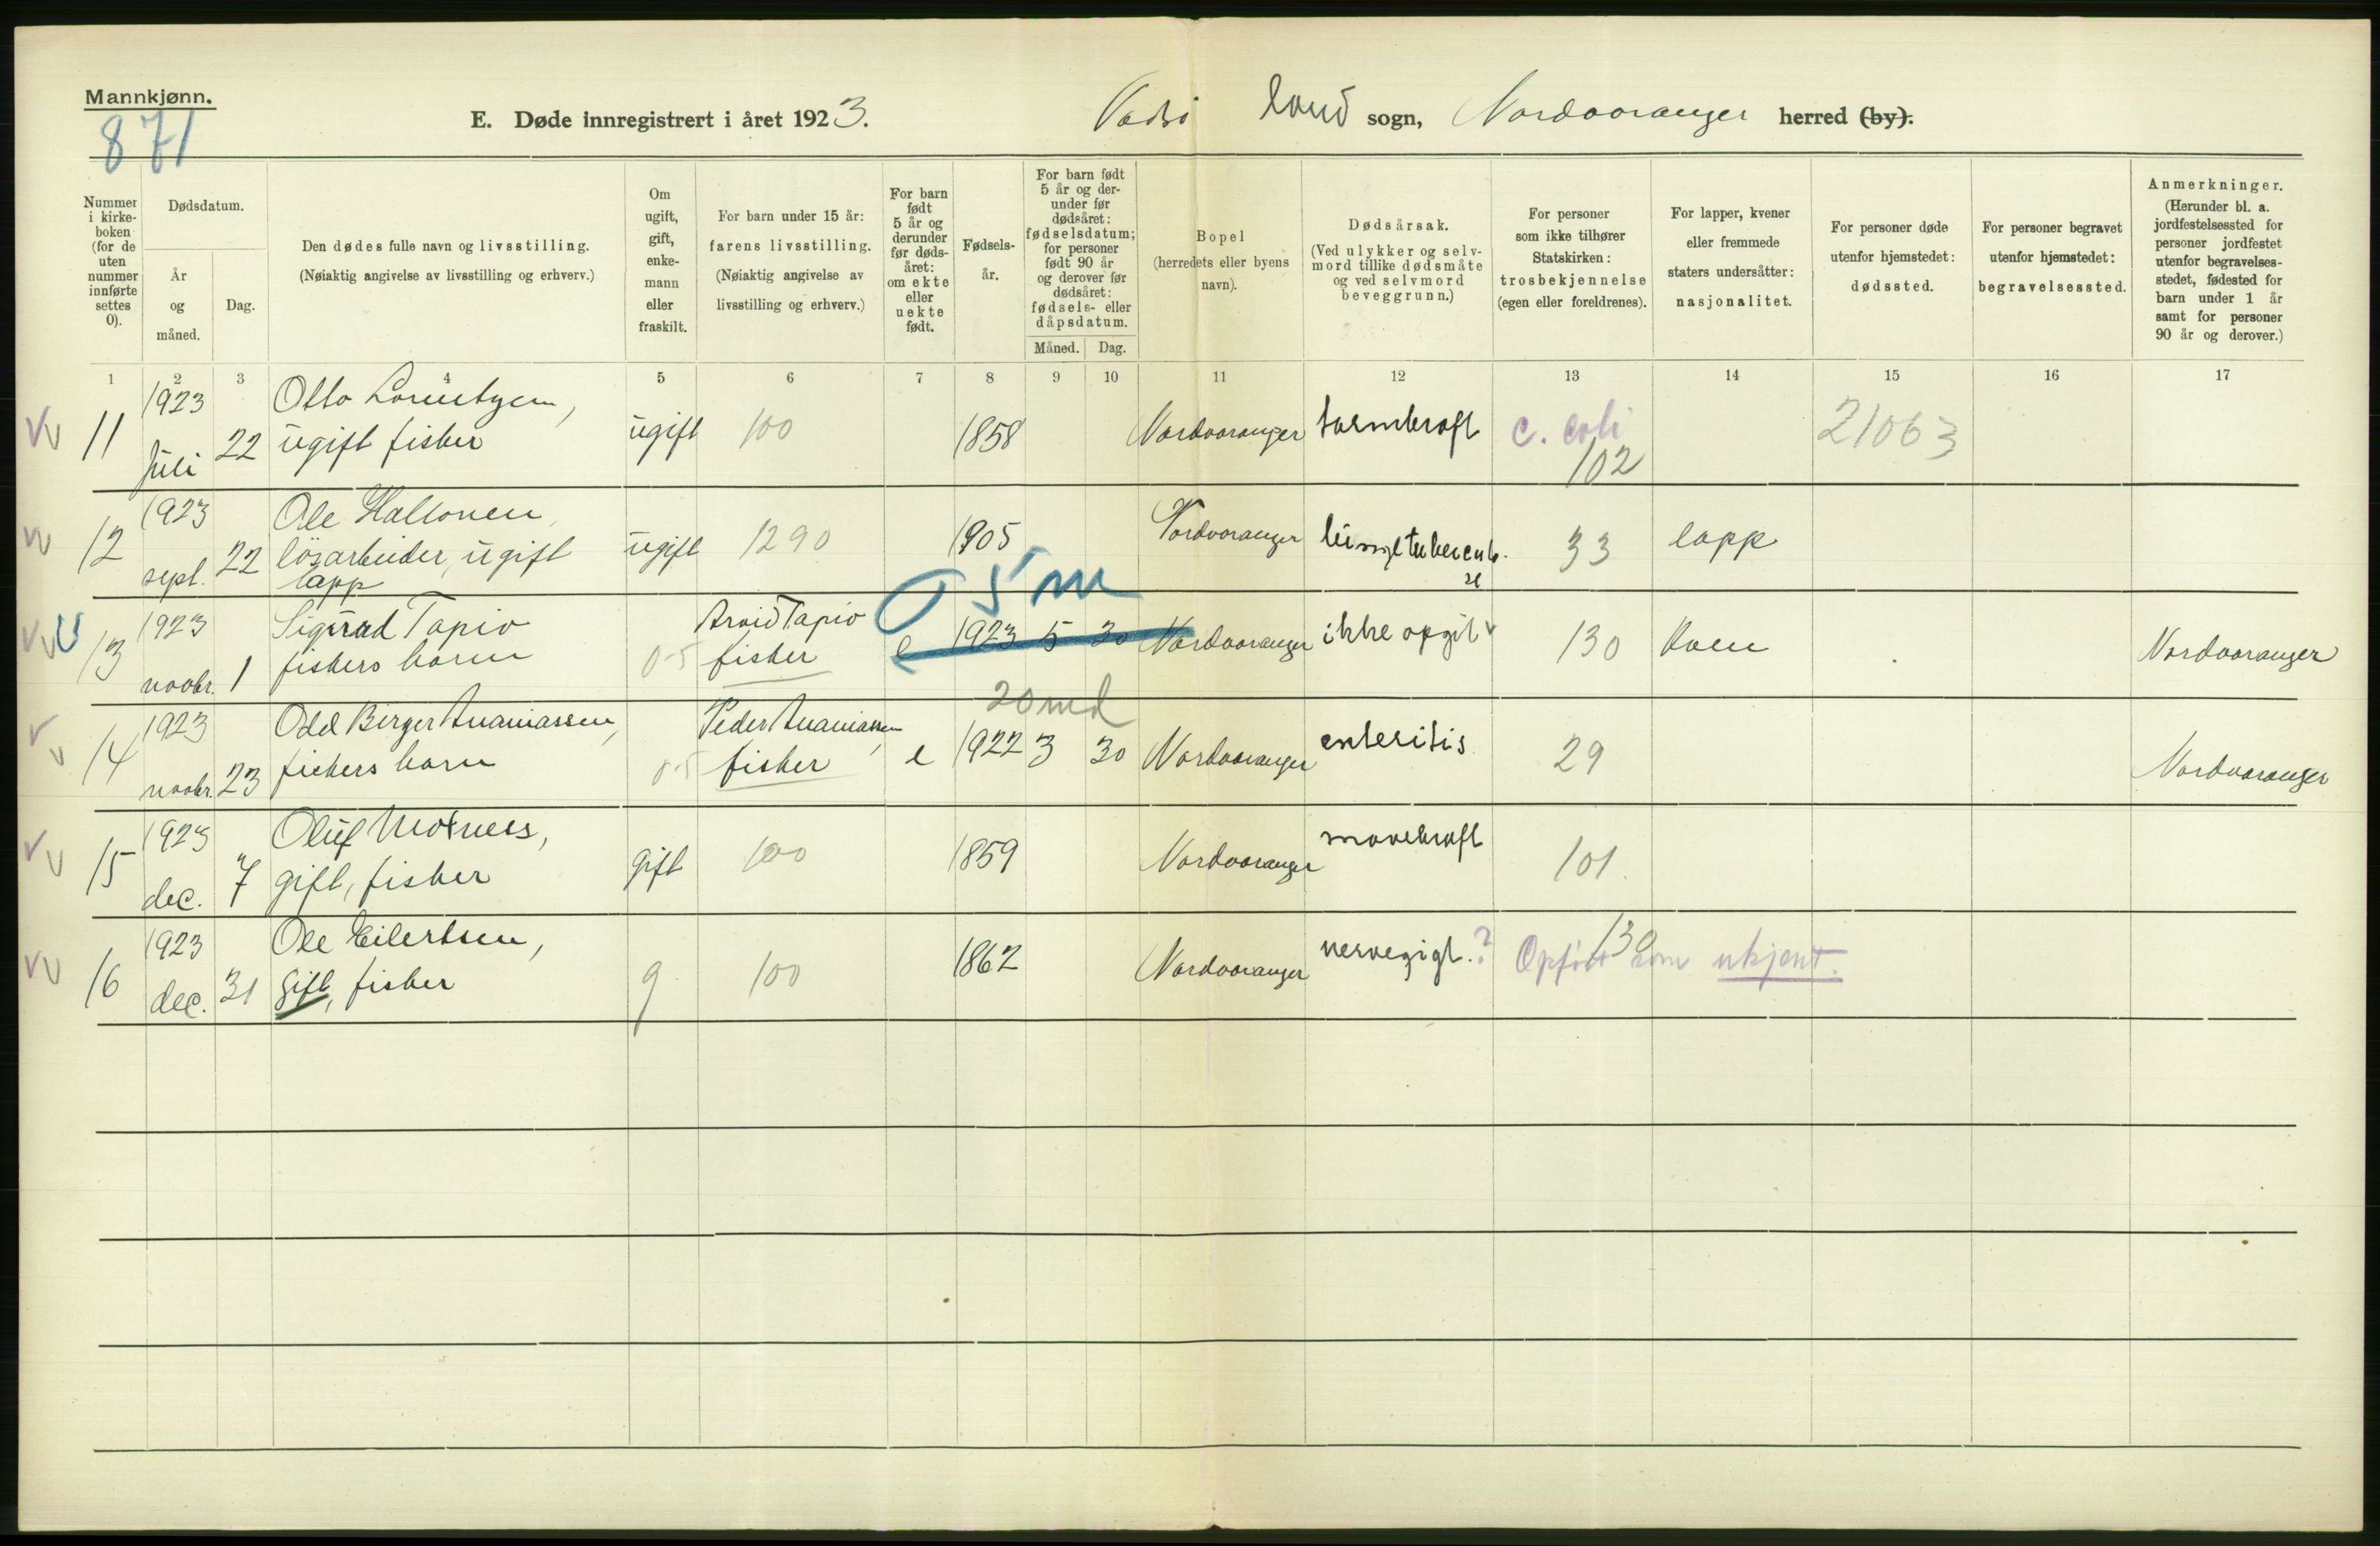 Mannkjønn.
871
E. Døde innregistrert i året 1923.
Vadsø land sogn, Nordvaranger herred (by).
Nummer i kirke-boken (for de uten nummer innførte settes 0).
Dødsdatum.
År og måned.
Dag.
Den dødes fulle navn og livsstilling.
(Nøiaktig angivelse av livsstilling og erhverv.)
Om ugift, gift, enke-mann eller fraskilt.
For barn under 15 år: farens livsstilling.
(Nøiaktig angivelse av livsstilling og erhverv.)
For barn født 5 år og derunder før døds-året: om ekte eller uekte født.
Fødsels-år.
For barn født 5 år og der-under før dødsåret: fødselsdatum; for personer født 90 år og derover før dødsåret: fødsels- eller dåpsdatum.
Måned. Dag.
Bopel
(herredets eller byens navn).
Dødsårsak.
(Ved ulykker og selv-mord tillike dødsmåte og ved selvmord beveggrunn.)
For personer som ikke tilhører Statskirken: trosbekjennelse (egen eller foreldrenes).
For lapper, kvener eller fremmede staters undersåtter: nasjonalitet.
For personer døde utenfor hjemstedet: dødssted.
For personer begravet utenfor hjemstedet: begravelsessted.
Anmerkninger.
(Herunder bl. a. jordfestelsessted for personer jordfestet utenfor begravelses-stedet, fødested for barn under 1 år samt for personer 90 år og derover.)
1 2 3 4 5 6 7 8 9 10 11 12 13 14 15 16 17
11 1923 juli 22 Otto
ugift fisker ugift 100 1858 Nordvaranger tarmkraft c. coli 102 21063
12 1923 sept. 22 Ole Haltonen,
løsarbeider, ugift
lapp ugift 1290 1905 Nordvaranger lungetuberculose 33 lapp
05m
13 1923 novbr. 1 Sigurd Tapio
fiskers barn 0-5 Arvid Tapio
fisker e 1923 5 30 Nordvaranger ikke opgit 130 kven Nordvaranger
20 md
14 1923 novbr. 23 Odd Birger Ananiassen,
fiskers barn 0-5 Peder Ananiassen,
fisker e 1922 3 30 Nordvaranger enteritis 29 Nordvaranger
15 1923 dec. 7 Oluf
gift, fisker gift 100 1859 Nordvaranger mavekraft 101.
16 1923 dec. 31 Ole Eilertsen,
gift, fisker g 100 1862 Nordvaranger nervegigt.? 130 Opført som ukjent.